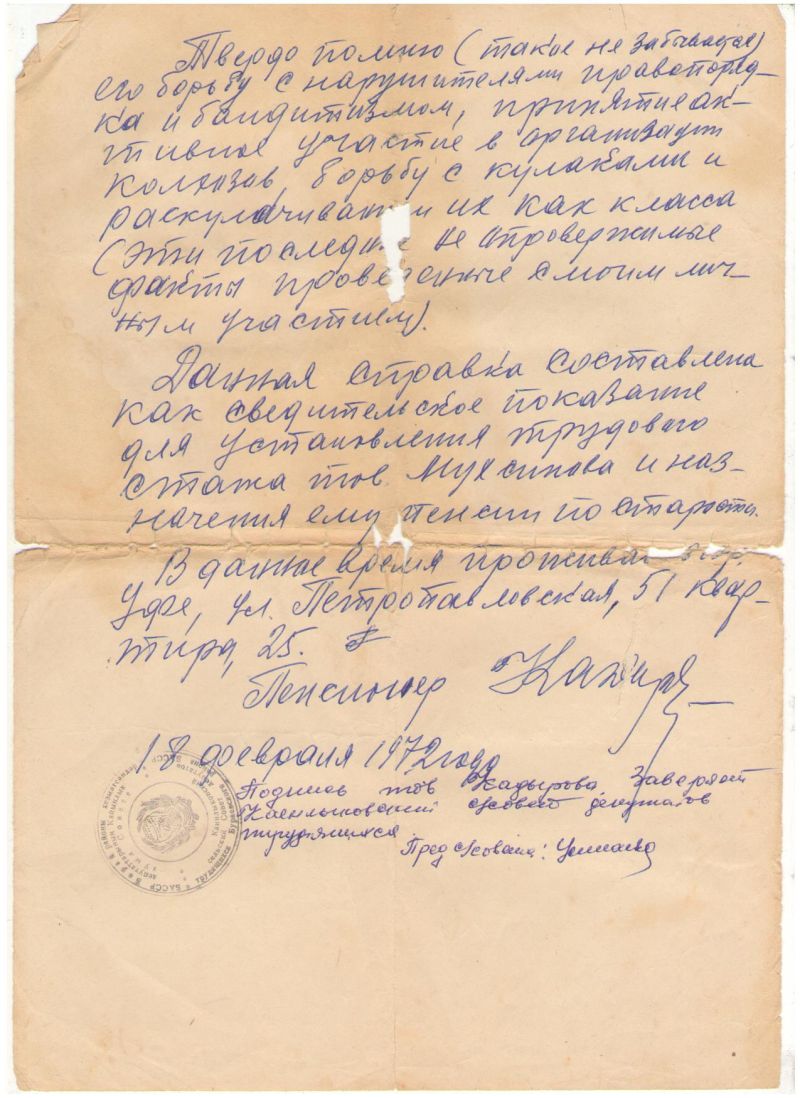 Твердо помню (такое не забывается)
его борьбу с нарушителями правопоряд-
ка и бандитизмом, принятие ак-
тивное участие в организации
колхозов, борьбу с кулаками и
раскулачивании их как класса
(эти последние не опровержимые
факты проведенные с моим лич-
ным участием).
Данная справка составлена
как сведительское показание
для установления трудового
стажа тов. Муксинова и наз-
начения ему пенсии по старости.
В данное время проживаю в гор.
Уфе, ул. Петропавловская, 51 квар-
тира, 25.
Пенсионер
18 февраля 1972 года
Подпись тов Кадырова Заверяет
сковет депутатов
трудящихся
Пред сковета: